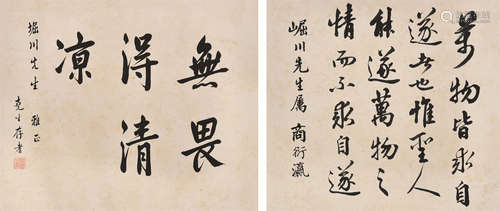 萬物皆求自
遂者也惟聖人
能遂萬物之
情而不求自遂
崛川先生属 商衍瀛
無畏
得清
涼
堀川先生 雅正